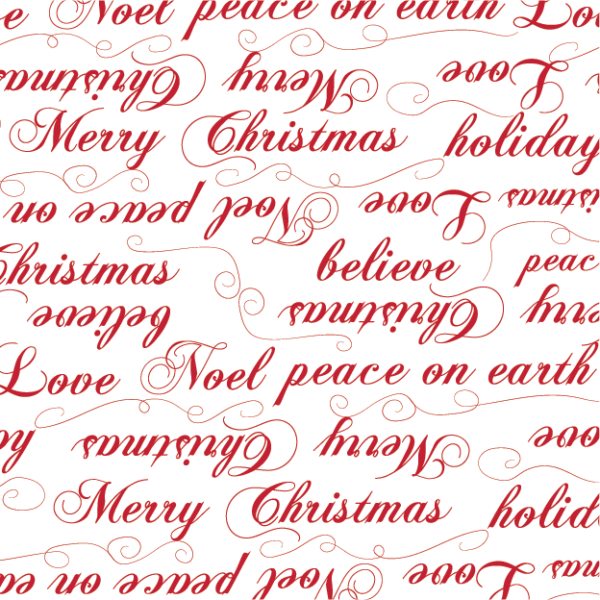 e Noel peace on earth Lo
Love Merry Christmas
Merry Christmas holiday
Christmas Love Noel peace on
Christmas believe peac
Merry Christmas believe
Love Noel peace on earth
Love Merry Christmas ho
Merry Christmas holid
mas Love Noel peace on ea